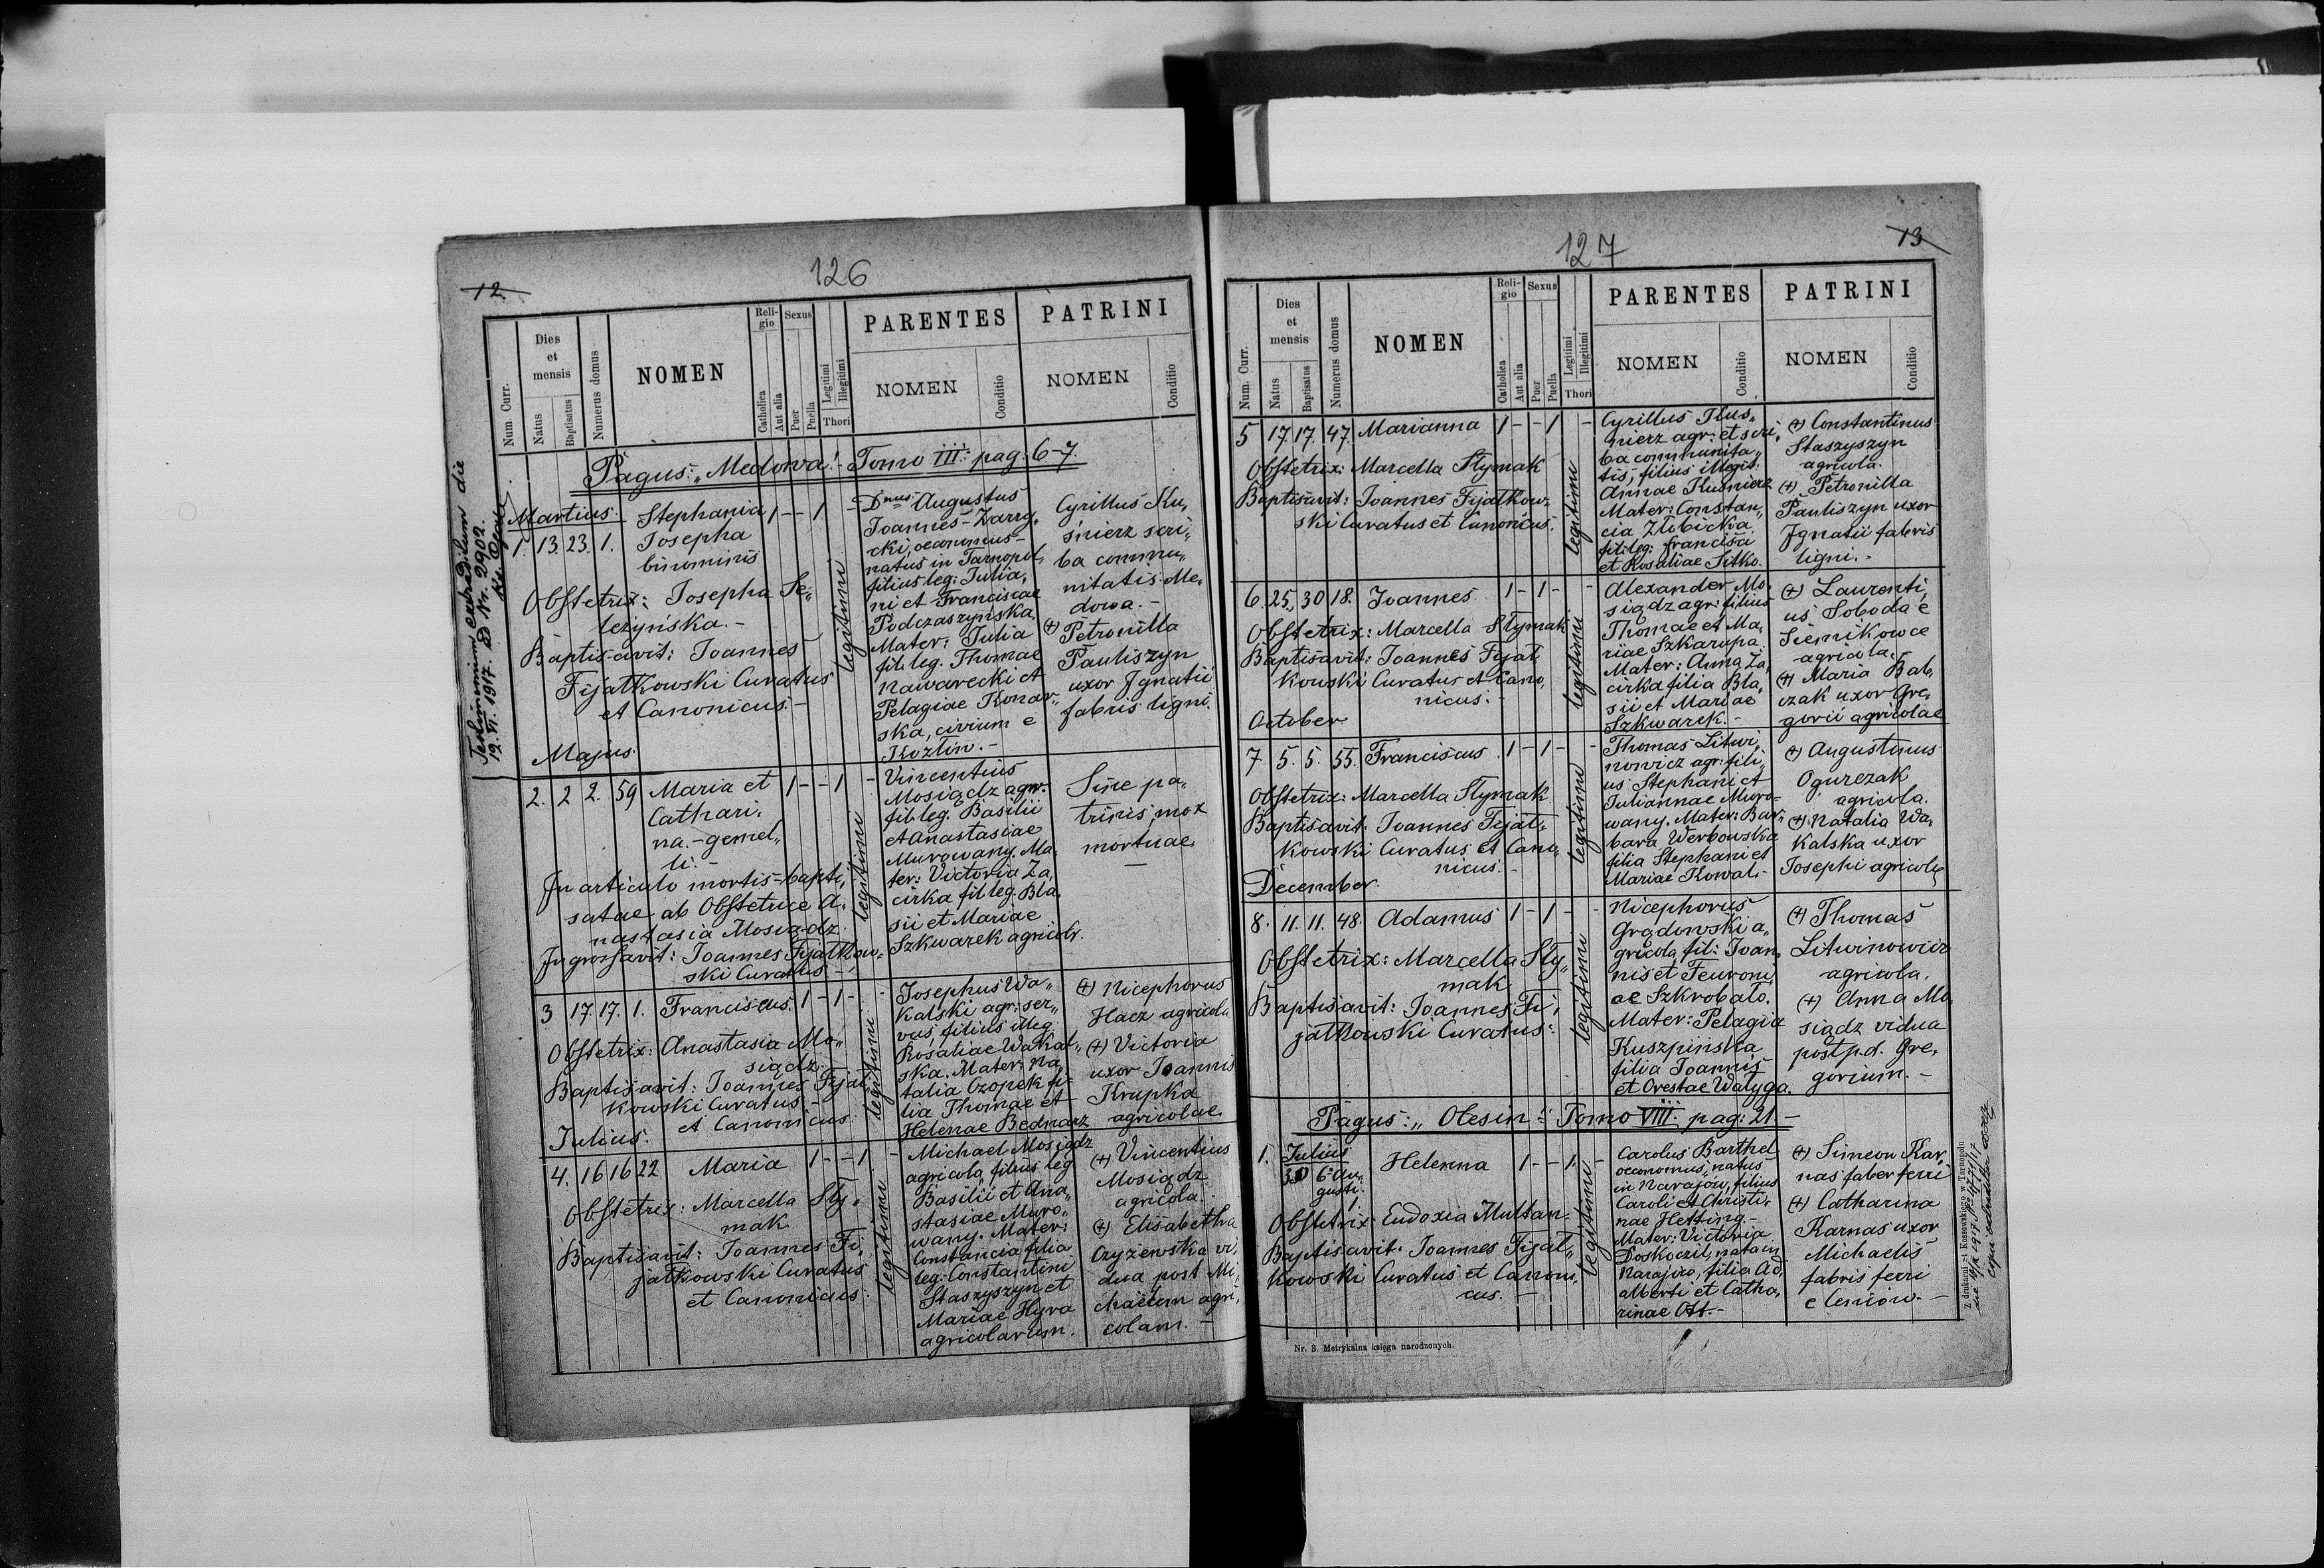 12.
126
Num. Curr.
Dies et mensis
Natus
Baptisatus
Numerus domus
NOMEN
Religio
Catholica
Aut alia
Sexus
Puer
Puella
Legitimi
Illegitimi
Thori
PARENTES
NOMEN
Conditio
PATRINI
NOMEN
Conditio
Testimonium extraditum die
12. VI. 1917. Nr. 2902.
Pagus: „Medowa" Tomo III: pag: 6-7.
Martius.
1. 13. 23. 1. Stephania 1 - - 1
Josepha
binominis
Obstetrix: Josepha Se„
leżyńska.-
Baptisavit: Joannes
Fijałkowski Curatus
et Canonicus.-
legitimi
Dnus Augustus
Joannes - Zarzy„
cki, oeconomus -
natus in Tarnopol,
filius leg: Julia„
ni et Franciscae
Podczaszyńska.
Mater: Julia
fil. leg. Thomae
Nawarecki et
Pelagiae Konar„
ska, civium e
Kozłów.-
Cyrillus Ku„
śnierz scri„
ba commu„
nitatis Me„
dowa.-
(+) Petronilla
Pauliszyn
uxor Ignatii
fabris ligni.
Majus.
2. 2 2. 59 Maria et 1 - - 1 -
Cathari„
na.-gemel„
li.-
In articulo mortis - bapti„
satae ab Obstetrice A„
nastasia Mosiądz.
Ingrossavit: Joannes Fijałkow„
ski Curatus.-
legitimi
Vincentius
Mosiądz agr.
fil. leg. Basilii
et Anastasiae
Murowany. Ma„
ter: Victoria Za„
cirka fil leg. Bla„
sii et Mariae
Szkwarek agricolr.
Sine pa„
trinis, mox
mortuae.
3 17. 17. 1. Franciscus. 1 - 1 - -
Obstetrix: Anastasia Mo„
siądz.
Baptisavit: Joannes Fijał„
kowski Curatus -
et Canonicus:
legitimi
Josephus Wa„
kalski agr: ser„
vus, filius illeg.
Rosaliae Wakal„
ska. Mater: Na„
talia Czopek fi-
lia Thomae et
Helenae Bednarz
(+) Nicephorus
Hacz agricola
(+) Victoria
uxor Joannis
Krupka
agricolae.
Julius.
4. 16 16 22 Maria 1 - - 1 -
Obstetrix: Marcella Sły„
mak
Baptisavit: Joannes Fi„
jałkowski Curatus
et Canonicus:
legitimi
Michael Mosiądz
agricola, filius leg
Basilii et Ana„
stasiae Muro„
wany. Mater:
Constancia filia
leg: Constantini
Staszyszyn et
Mariae Hyra
agricolarum.
(+) Vincentius
Mosiądz
agricola.
(+) Elisabetha
Czyżewska vi„
dua post Mi„
chaëlem agri„
colam.-
127
13
Num. Curr.
Dies et mensis
Natus
Baptisatus
Numerus domus
NOMEN
Religio
Catholica
Aut alia
Sexus
Puer
Puella
Legitimi
Illegitimi
Thori
PARENTES
NOMEN
Conditio
PATRINI
NOMEN
Conditio
5 17. 17. 47. Marianna 1 - - 1 -
Obstetrix: Marcella Słymak
Baptisavit: Joannes Fijałkow„
ski Curatus et Canonicus:
legitimi
Cyrillus Tłus„
nierz agr: et scri„
ba communita„
tis, filius illegit:
Annae Tłusnierz
Mater: Constan„
cia Złobicka
fil: leg: Francisci
et Rosaliae Sitko.
(+) Constantinus
Staszyszyn
agricola.
(+) Petronilla
Pauliszyn uxor
Ignatii fabris
ligni.-
6. 25. 30 18. Joannes. 1 - 1 - -
Obstetrix: Marcella Słymak
Baptisavit: Joannes Fijał„
kowski Curatus et Cano„
nicus:-
legitimi
Alexander Mo„
siądz agr: filius
Thomae et Ma„
riae Szkarupa.
Mater: Anna Za„
cirka filia Bla„
sii et Mariae
Szkwarek.-
(+) Laurenti„
us Soboda e
Siemikowce
agricola.
(+) Maria Bab„
czak uxor Gre„
gorii agricolae
October
7 5. 5. 55. Franciscus 1 - 1 - -
Obstetrix: Marcella Słymak
Baptisavit: Joannes Fijał„
kowski Curatus et Cano„
nicus.-
legitimi
Thomas Litwi„
nowicz agr: fili„
us Stephani et
Juliannae Muro-
wany. Mater: Bar„
bara Werbowska
filia Stephani et
Mariae Kowal.-
(+) Augustinus
Ogurczak
agricola.
(+) Natalia Wa„
kalska uxor
Josephi agricolae
December.
8. 11. 11. 48. Adamus 1 - 1 - -
Obstetrix: Marcella Sły„
mak
Baptisavit: Joannes Fi„
jałkowski Curatus:
legitimi
Nicephorus
Grądowski a„
gricola, fil: Joan„
nis et Feuroni„
ae Szkrobało.
Mater: Pelagia
Kuszpińska
filia Joannis
et Orestae Wałyga.
(+) Thomas
Litwinowicz
agricola.
(+) Anna Mo„
siądz vidua
post p.d. Gre„
gorium.-
Pagus: „Olesin": Tomo VIII. pag: 21.-
1. Julius
30 6 Au„
gusti.
Helenna 1 - - 1. -
Obstetrix: Eudoxia Multan
Baptisavit: Joannes Fijał„
kowski Curatus et Canoni„
cus.-
legitimi
Carolus Barthel
oeconomus, natus
in Narajów, filius
Caroli et Christi„
nae Hetting.-
Mater: Victoria
Doskoczil, nata in
Narajów, filia Ad„
alberti et Catha„
rinae Ott.-
(+) Simeon Kar„
nas faber ferri
(+) Catharina
Karnas uxor
Michaelis
fabris ferri
e Ceniów.-
Z drukarni J. Kossowskiego w Tarnopolu
Nr. 3. Metrykalna księga narodzonych.